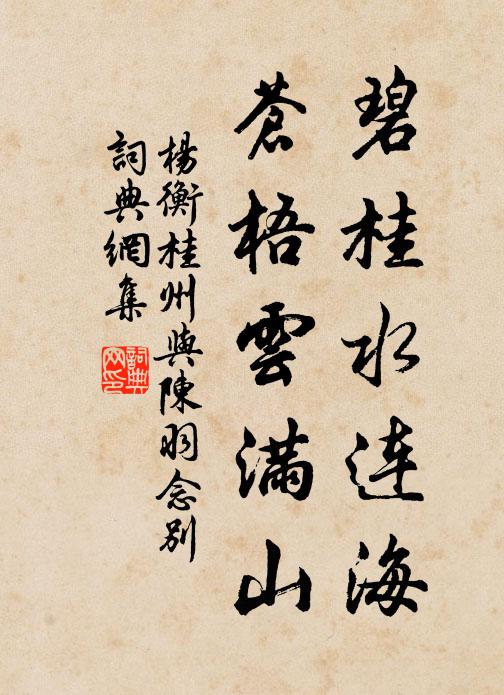 碧桂水连海
蒼梧雲满山
楊衡桂州與陳羽念别
詞典網集
詞典网印